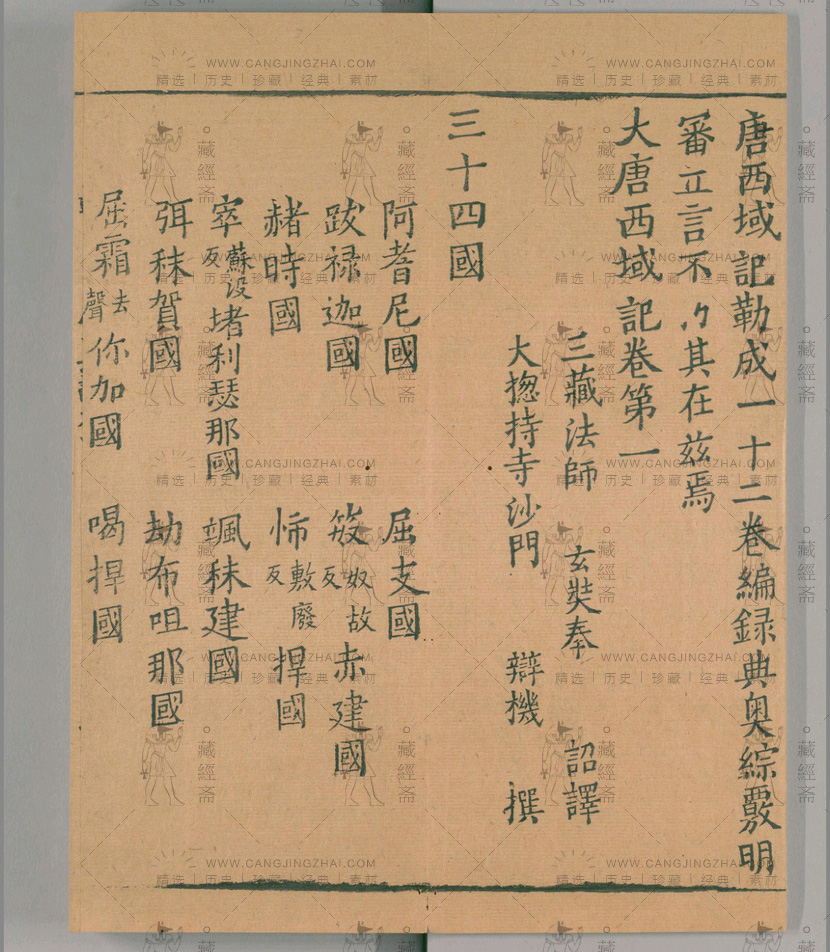 唐西域記勒成一十二卷編録典奥綜覈明
審立言不朽其在兹焉
大唐西域記卷第一
三藏法師 玄奘奉 詔譯
大揔持寺沙門 辯機 撰
三十四國
阿耆尼國 屈支國
跋禄迦國 笯奴故反赤建國
赭時國 㤄敷廢反捍國
窣蘇没反堵利瑟那國 颯秣建國
弭秣賀國 劫布咀那國
屈霜去聲你加國 喝捍國
WWW.CANGJINGZHAI.COM
精选 | 历史 | 珍藏 | 经典 | 素材
藏經斋